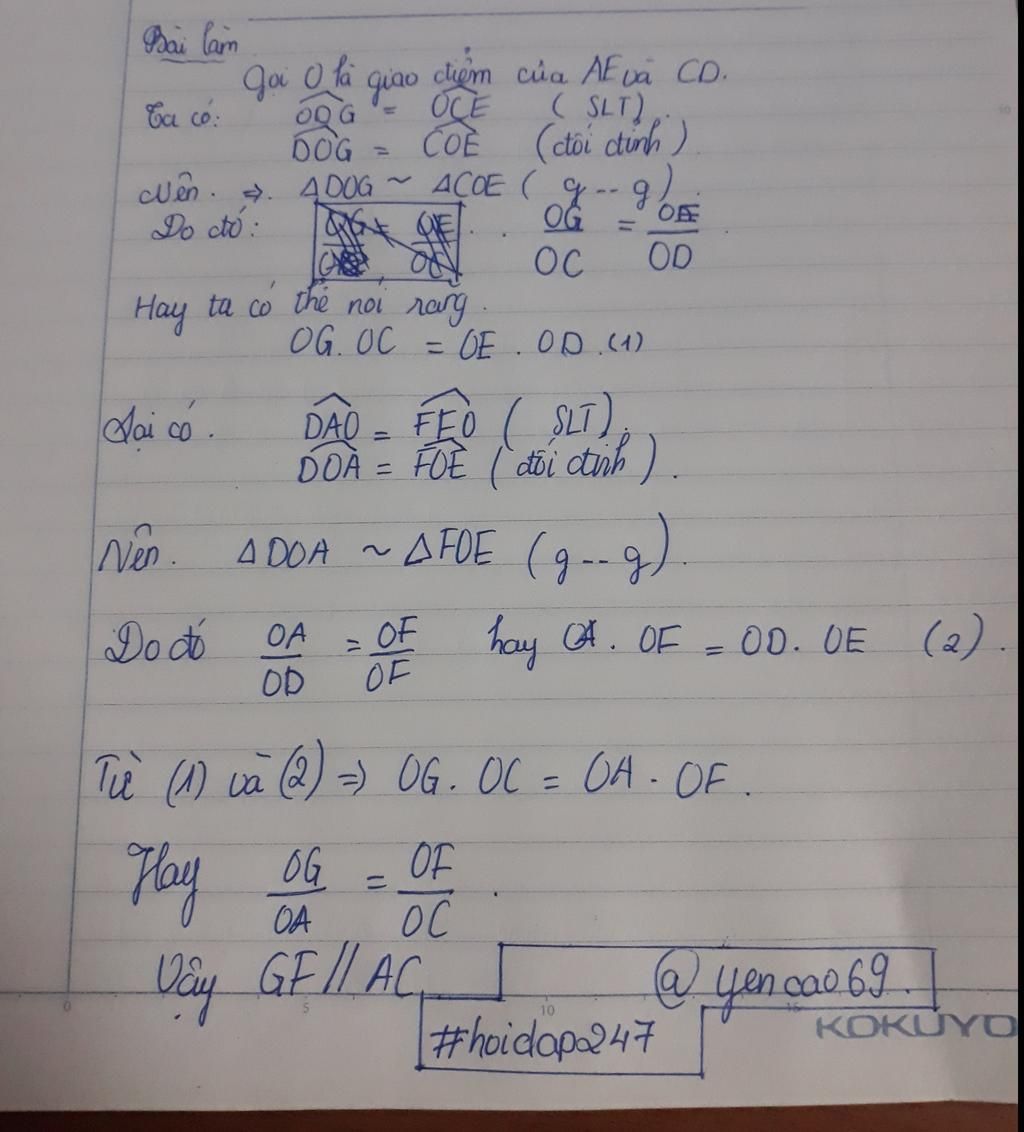 Bài làm
Gọi O là giao điểm của AE và CD.
Ta có: ODG = OCE (SLT).
DOG = COE (đối đỉnh).
Nên. => ΔDOG ~ ΔCOE (g--g).
Do đó: OG/OC = OE/OD
Hay ta có thể nói rang.
OG.OC = OE.OD.(1)
Lại có. DAO = FEO (SLT).
DOA = FOE (đối đỉnh).
Nên. ΔDOA ~ ΔFOE (g--g).
Do đó OA/OD = OF/OF hay OA.OF = OD.OE (2).
Từ (1) và (2) => OG.OC = OA.OF.
Hay OG/OA = OF/OC.
Vậy GF//AC
@yencao69.
#hoidap247
0 5 10 15
KOKUYO